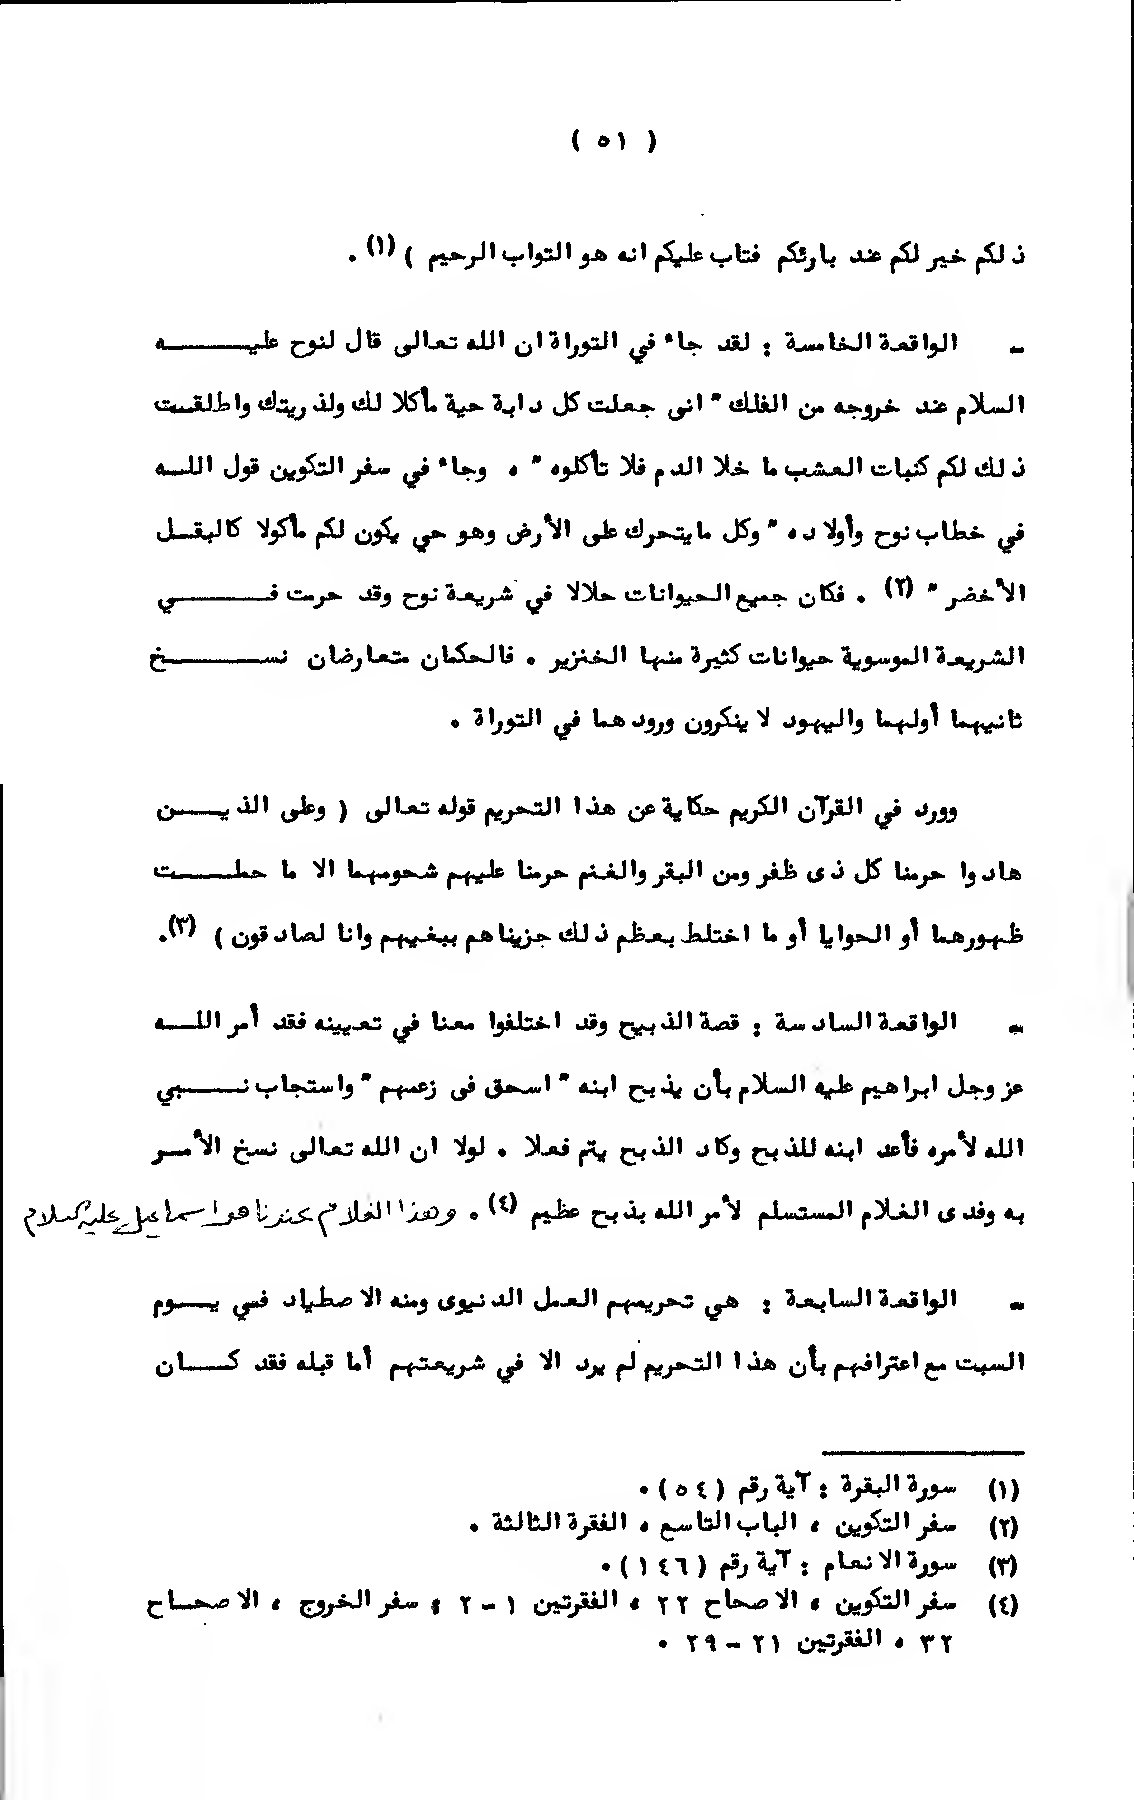 ( ٥١ )
ذلكم خير لكم عند بارئكم فتاب عليكم انه هو التواب الرحيم ) (١) .
- الواقعة الخامسة : لقد جاء في التوراة ان الله تعالى قال لنوح عليه
السلام عند خروجه من الفلك " انى جعلت كل دابة حية مأكلا لك ولذريتك واطلقت
ذلك لكم كنبات العشب ما خلا الدم فلا تأكلوه " ، وجاء في سفر التكوين قول الله
في خطاب نوح وأولاده " وكل مايتحرك على الأرض وهو حي يكون لكم مأكولا كالبقل
الأخضر " (٢) . فكان جميع الحيوانات حلالا في شريعة نوح وقد حرمت في
الشريعة الموسوية حيوانات كثيرة منها الخنزير . فالحكمان متعارضان نسخ
ثانيهما أولهما واليهود لا ينكرون ورودهما في التوراة .
وورد في القرآن الكريم حكاية عن هذا التحريم قوله تعالى ( وعلى الذين
هادوا حرمنا كل ذى ظفر ومن البقر والغنم حرمنا عليهم شحومهما الا ما حملت
ظهورهما أو الحوايا أو ما اختلط بعظم ذلك جزيناهم ببغيهم وانا لصادقون ) (٣).
- الواقعة السادسة : قصة الذبيح وقد اختلفوا معنا في تعيينه فقد أمر الله
عز وجل ابراهيم عليه السلام بأن يذبح ابنه " اسحق فى زعمهم " واستجاب نبي
الله لأمره فأعد ابنه للذبح وكاد الذبح يتم فعلا . لولا ان الله تعالى نسخ الأمر
به وفدى الغلام المستسلم لأمر الله بذبح عظيم (٤) . وهذا الغلام عندنا هو اسماعيل عليه السلام
- الواقعة السابعة : هي تحريمهم العمل الدنيوى ومنه الاصطياد في يوم
السبت مع اعترافهم بأن هذا التحريم لم يرد الا في شريعتهم أما قبله فقد كان
(١) سورة البقرة : آية رقم (٥٤) .
(٢) سفر التكوين ، الباب التاسع ، الفقرة الثالثة .
(٣) سورة الانعام : آية رقم (١٤٦) .
(٤) سفر التكوين ، الاصحاح ٢٢ ، الفقرتين ١ - ٢ ؛ سفر الخروج ، الاصحاح
٣٢ ، الفقرتين ٢١ - ٢٩ .